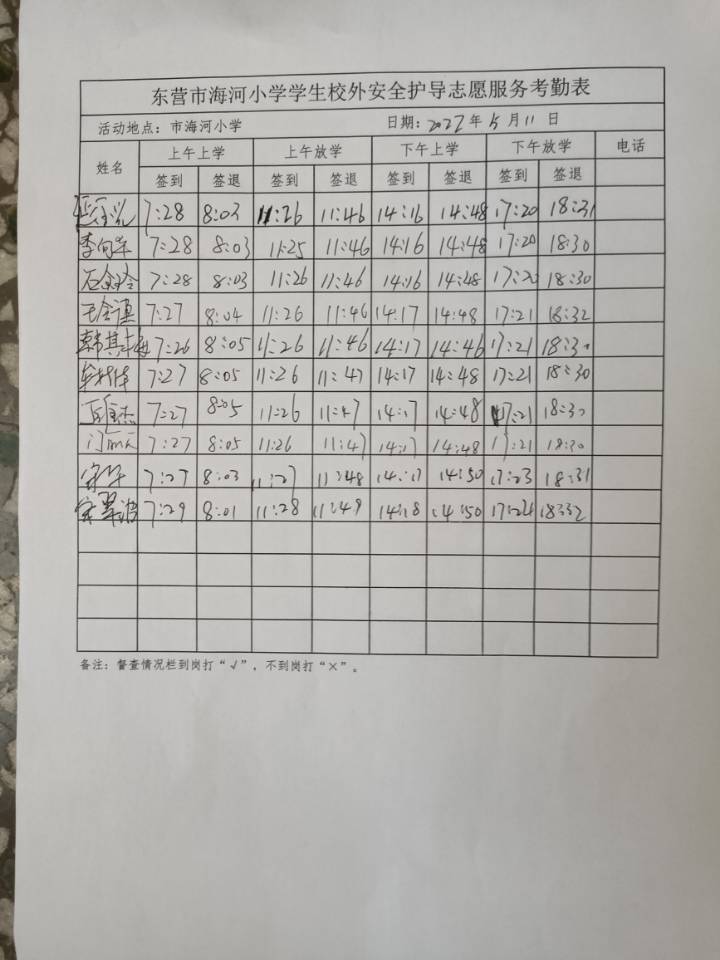 东营市海河小学学生校外安全护导志愿服务考勤表
活动地点：市海河小学 日期：2022年5月11日
姓名 上午上学 上午放学 下午上学 下午放学 电话
签到 签退 签到 签退 签到 签退 签到 签退
7:28 8:03 11:26 11:46 14:16 14:48 17:20 18:31
7:28 8:03 11:25 11:46 14:16 14:48 17:20 18:30
7:28 8:03 11:26 11:46 14:16 14:48 17:20 18:30
7:27 8:04 11:26 11:46 14:17 14:48 17:21 18:32
7:26 8:05 11:26 11:46 14:17 14:46 17:21 18:30
7:27 8:05 11:26 11:47 14:17 14:48 17:21 18:30
7:27 8:05 11:26 11:47 14:17 14:48 17:21 18:30
7:27 8:05 11:26 11:47 14:17 14:48 17:21 18:30
7:27 8:03 11:27 11:48 14:17 14:50 17:23 18:31
7:29 8:01 11:28 11:49 14:18 14:50 17:24 18:32
备注：督查情况栏到岗打“√”，不到岗打“×”。